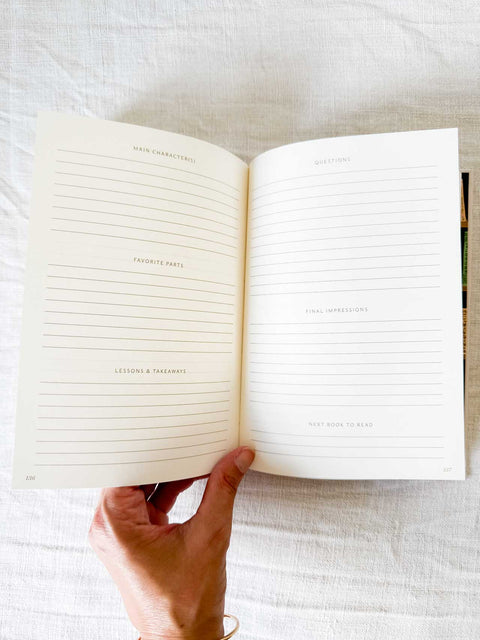 MAIN CHARACTER(S)
FAVORITE PARTS
LESSONS & TAKEAWAYS
226
QUESTIONS
FINAL IMPRESSIONS
NEXT BOOK TO READ
227